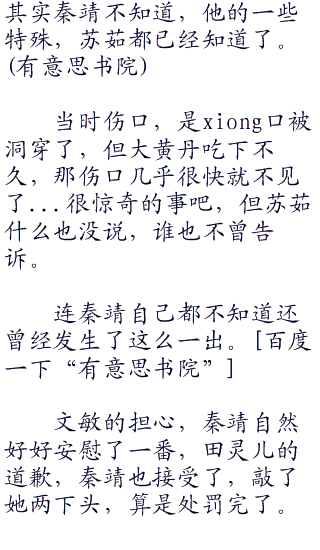 其实秦靖不知道，他的一些
特殊，苏茹都已经知道了。
(有意思书院)
当时伤口，是xiong口被
洞穿了，但大黄丹吃下不
久，那伤口几乎很快就不见
了...很惊奇的事吧，但苏茹
什么也没说，谁也不曾告
诉。
连秦靖自己都不知道还
曾经发生了这么一出。[百度
一下“有意思书院”]
文敏的担心，秦靖自然
好好安慰了一番，田灵儿的
道歉，秦靖也接受了，敲了
她两下头，算是处罚完了。